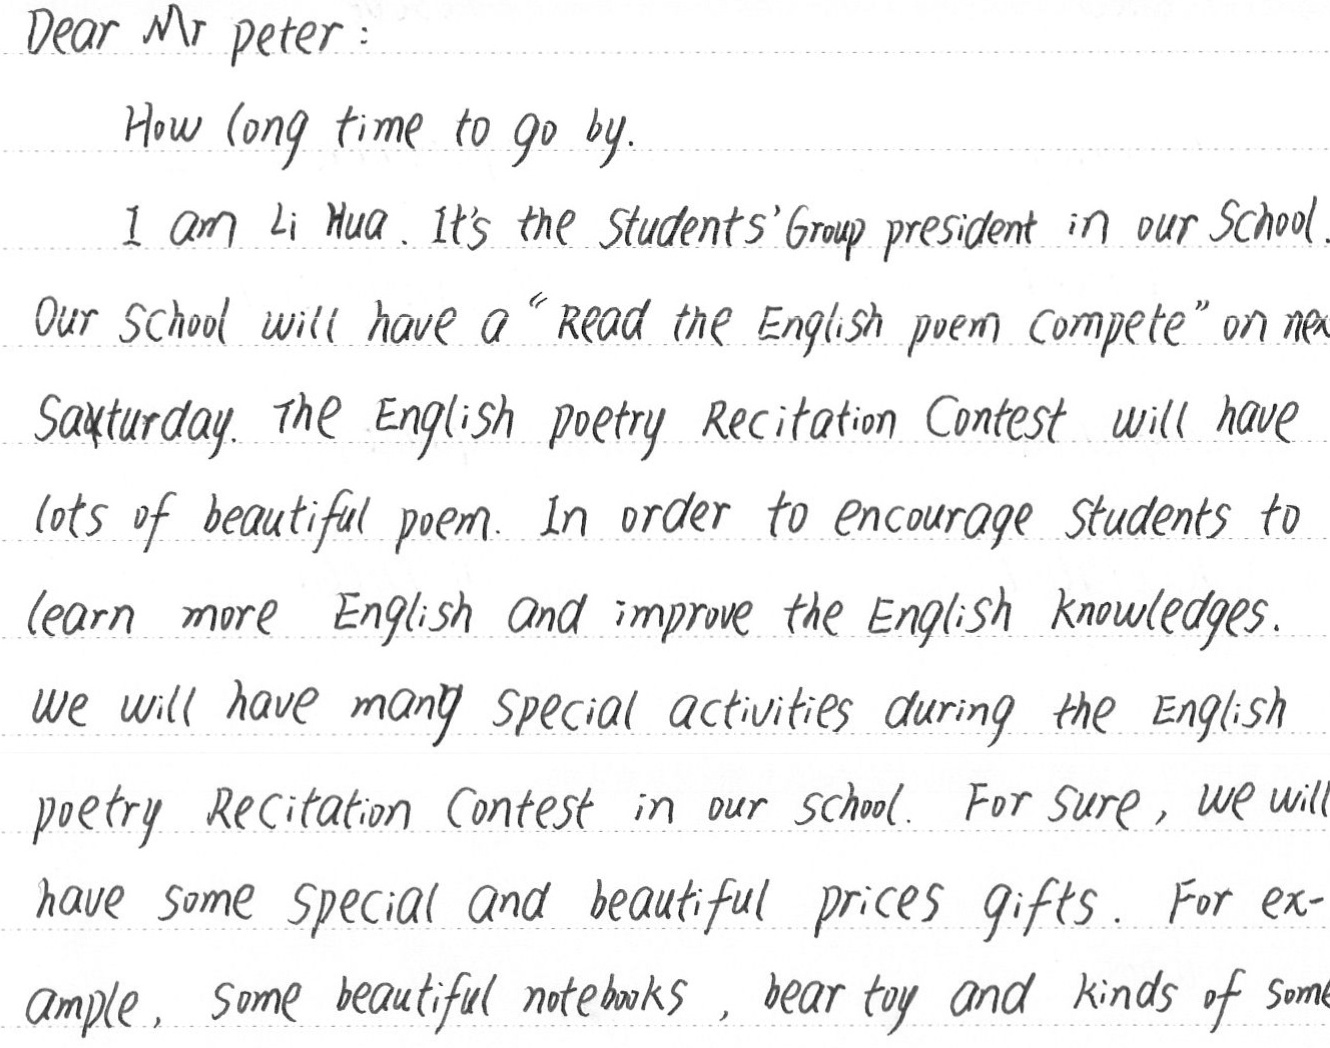 Dear Mr peter:
How long time to go by.
I am Li Hua. It's the students' Group president in our School.
Our school will have a "Read the English poem compete" on nex
Saturday. The English poetry Recitation Contest will have
lots of beautiful poem. In order to encourage students to
learn more English and improve the English knowledges.
We will have many special activities during the English
poetry Recitation Contest in our school. For sure, we will
have some special and beautiful prices gifts. For ex-
ample, some beautiful notebooks, bear toy and kinds of some